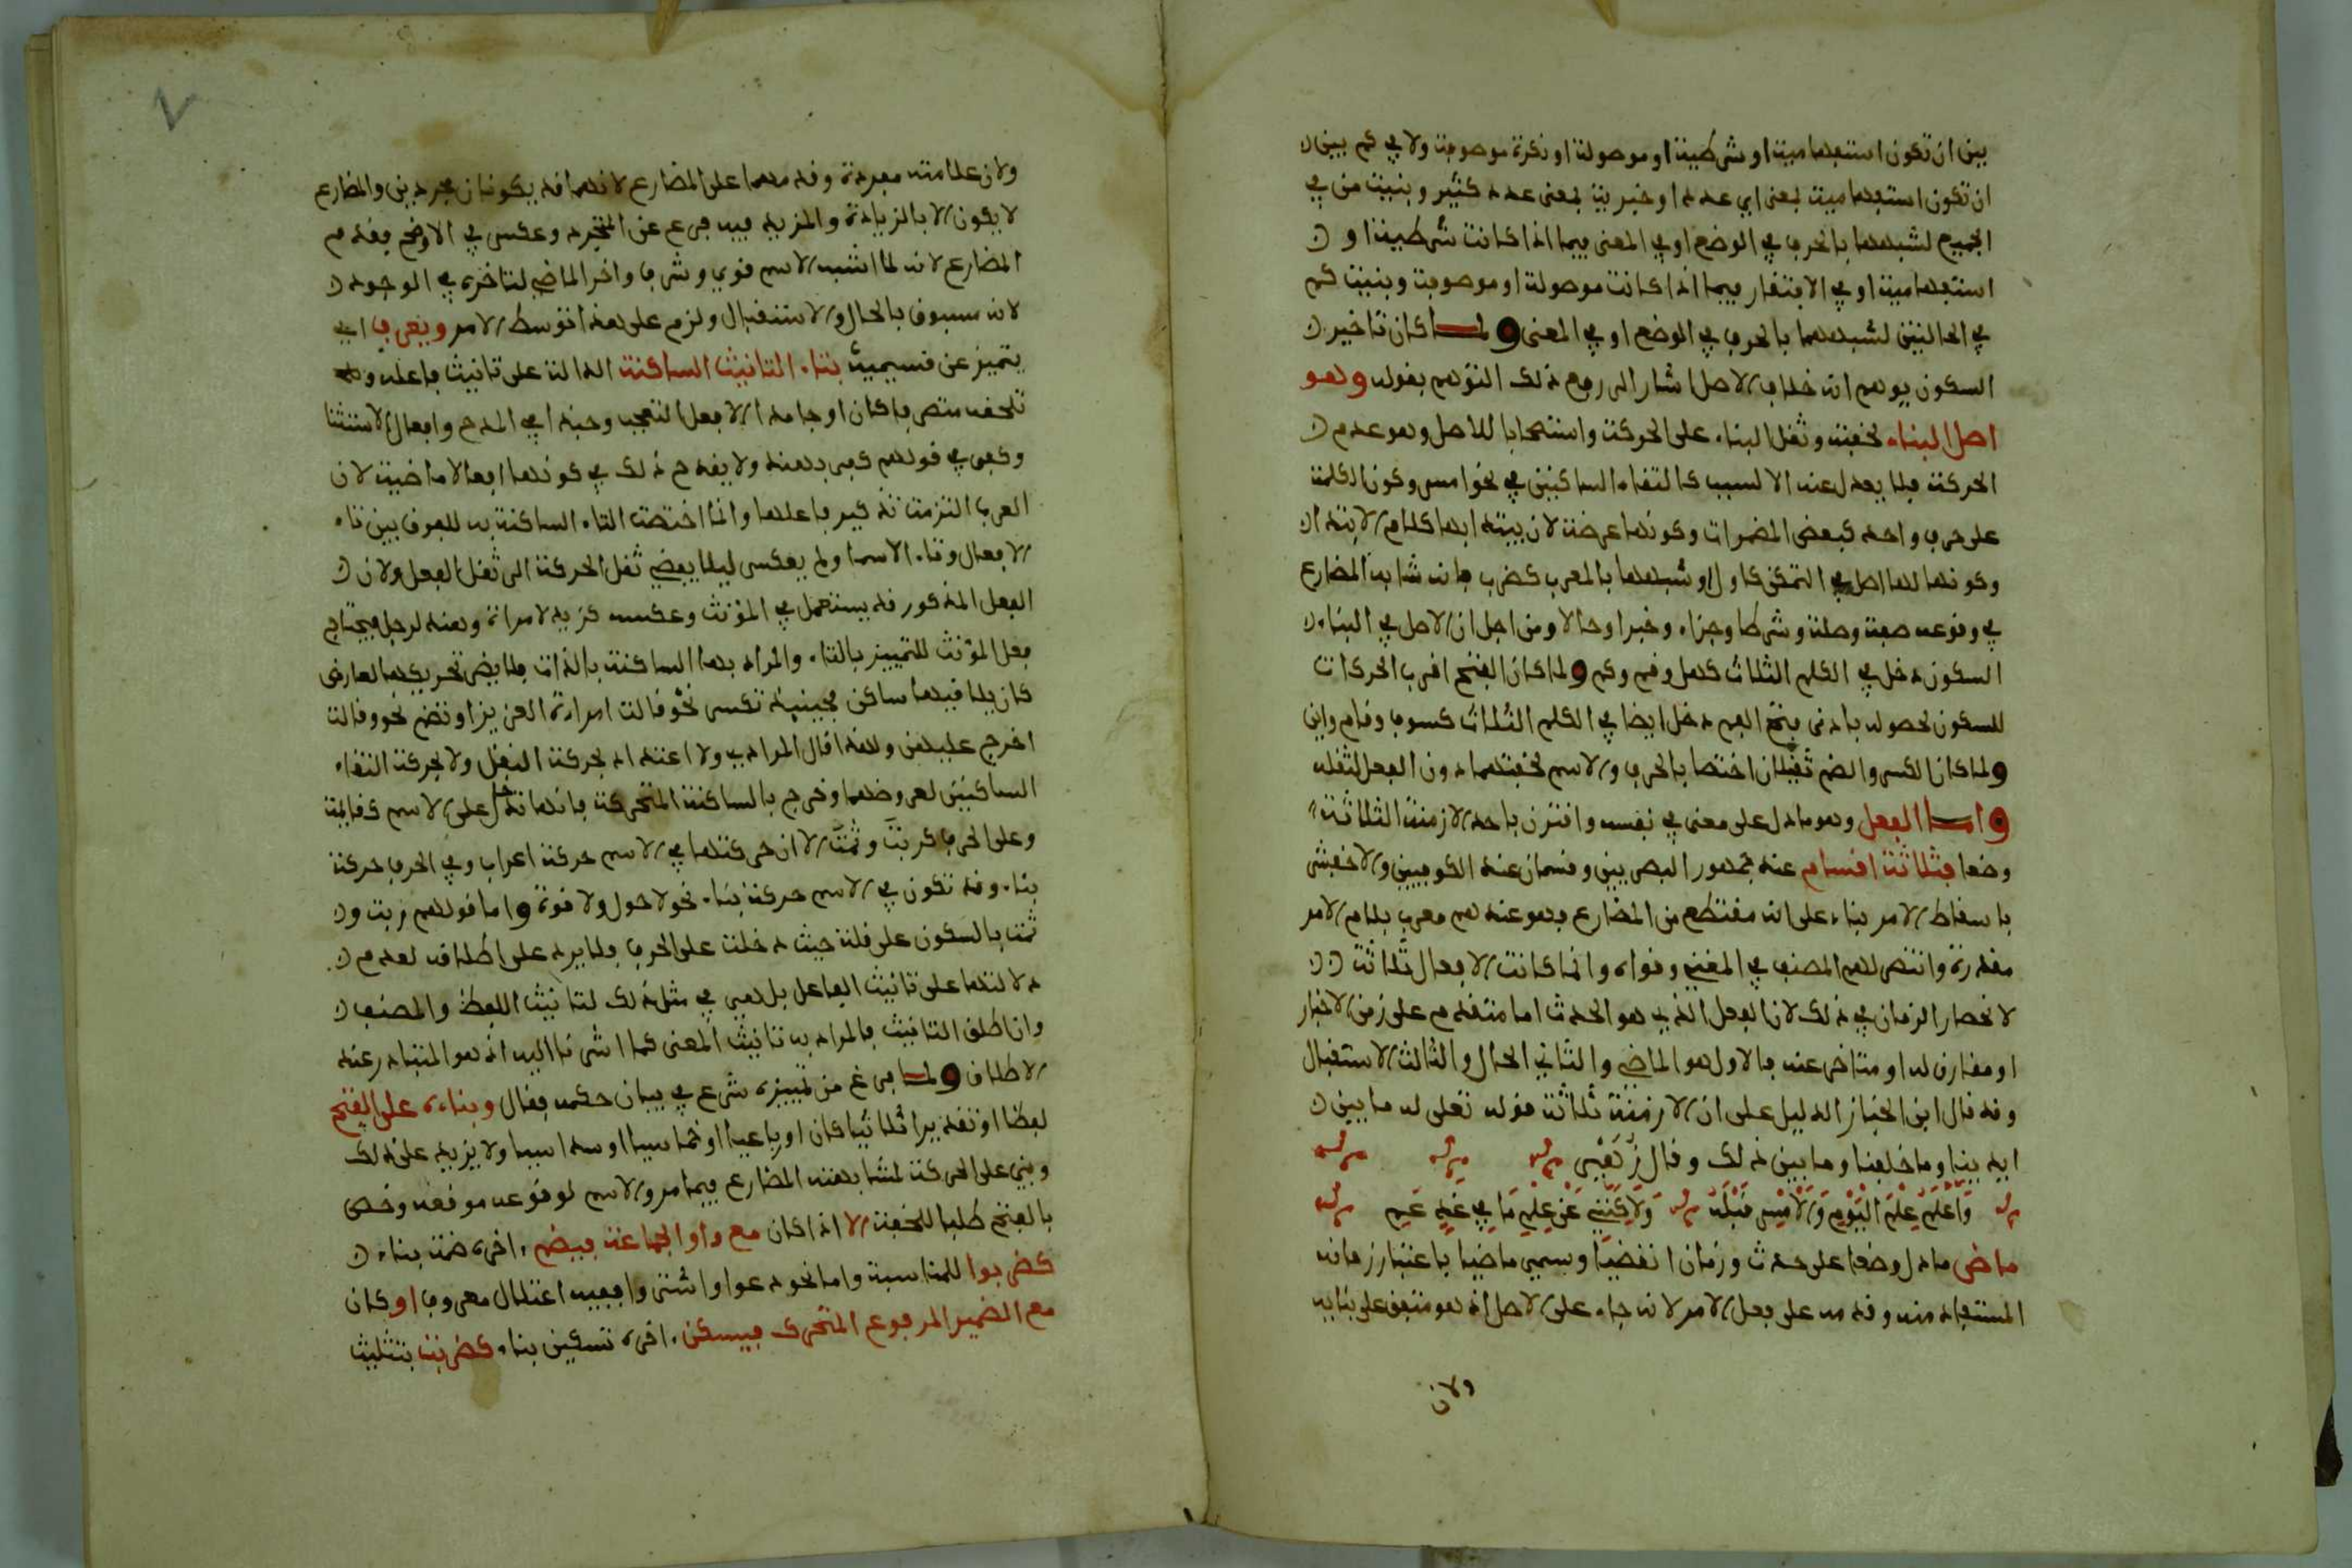 بين ان تكون استفهامية او شرطية او موصولة او نكرة موصوفة ولا في كم بين
ان تكون استفهامية بمعنى اي عدد او خبرية بمعنى عدد كثير وبنيت من في
الجميع لشبهها بالحرف في الوضع او في المعنى فيما اذا كانت شرطية او
استفهامية او في الافتقار فيما اذا كانت موصولة او موصوفة وبنيت كم
في الحالتين لشبهها بالحرف في الوضع او في المعنى ولما كان تاخير
السكون يوهم انه خلاف الاصل اشار الى رفع ذلك التوهم بقوله وهو
اصل البناء لخفته وثقل البناء على الحركة واستصحابا للاصل وهو عدم
الحركة فلا يعدل عنه الا لسبب كالتقاء الساكنين في نحو امس وكون الكلمة
على حرف واحد كبعض المضمرات وكونها عرضة لان يبتدا بها كلام الابتدا
وكونها لها اصل في التمكن كاول او شبهها بالمعرب كضرب فانه شابه المضارع
في وقوعه صفة وصلة وشرطا وجزاء وخبرا وحالا ومن اجل ان الاصل في البناء
السكون دخل في الكلم الثلاث كهل وقم وكم ولما كان الفتح اقرب الحركات
للسكون لحصوله بادنى فتح الفم دخل ايضا في الكلم الثلاث كسوف وقام واين
ولما كان الكسر والضم ثقيلان اختصا بالحرف والاسم لخفتهما دون الفعل لثقله
واما الفعل وهو ما دل على معنى في نفسه واقترن باحد الازمنة الثلاثة
وضعا فثلاثة اقسام عند جمهور البصريين وقسمان عند الكوفيين والاخفش
باسقاط الامر بناء على انه مقتطع من المضارع فهو عندهم معرب بلام الامر
مقدرة وانتصر لهم المصنف في المغني وقواه وانما كانت الافعال ثلاثة
لانحصار الزمان في ذلك لان الفعل الذي هو الحدث اما متقدم على زمن الاخبار
او مقارن له او متاخر عنه فالاول هو الماضي والثاني الحال والثالث الاستقبال
وقد قال ابن الخباز الدليل على ان الازمنة ثلاثة قوله تعلى له ما بين
ايدينا وما خلفنا وما بين ذلك وقال زُهَيْر
وَاَعْلَمُ عِلْمَ الْيَوْمِ وَالْاَمْسِ قَبْلَهُ وَلَاكِنَّنِي عَنْ عِلْمِ مَا فِي غَدٍ عَمِ
ماض ما دل وضعا على حدث وزمان انقضيا وسمي ماضيا باعتبار زمانه
المستفاد منه وقدمه على فعل الامر لانه جاء على الاصل اذ هو متفق على بنايه
ولان
٧
ولان علامته مفردة وقدمهما على المضارع لانهما قد يكونان مجردين والمضارع
لا يكون الا بالزيادة والمزيد فيه فرع عن المجرد وعكس في الاوضح فقدم
المضارع لانه لما اشبه الاسم قوي وشرف واخر الماضي لتاخره في الوجود
لانه مسبوق بالحال والاستقبال ولزم على هذا توسط الامر ويعرف اي
يتميز عن قسيميه بتاء التانيث الساكنة الدالة على تانيث فاعله
تلحقه متصرفا كان او جامدا الا فعل التعجب وحبذا في المدح وافعال الاستثنا
وكفى في قولهم كفى بهند ولا يقدح ذلك في كونها افعالا ماضية لان
العرب التزمت تذكير فاعلها وانما اختصت التاء الساكنة به للفرق بين تاء
الافعال وتاء الاسما ولم يعكس ليلا يفضي ثقل الحركة الى ثقل الفعل ولان
الفعل المذكور قد يستعمل في المؤنث وعكسه كزيد لامراة وهند لرجل فيحتاج
فعل المؤنث للتمييز بالتاء والمراد بها الساكنة بالذات فلا يضر تحريكها لعارض
كان يلاقيها ساكن فحينيذ تكسر نحو قالت امراة العزيز او تضم نحو وقالت
اخرج عليهن ولهذا قال المرادي ولا اعتداد بحركة النقل ولا بحركة التقاء
الساكنين لعروضهما وخرج بالساكنة المتحركة فانها تدخل على الاسم كقايمة
وعلى الحرف كربت وثمت الا ان حركتها في الاسم حركة اعراب وفي الحرف حركة
بناء وقد تكون في الاسم حركة بناء نحو لا حول ولا قوة واما قولهم ربت و
ثمت بالسكون على قلة حيث دخلت على الحرف فلا يرد على اطلاقه لعدم
دلالتها على تانيث الفاعل بل هي في مثل ذلك لتانيث اللفظ والمصنف
وان اطلق التانيث فالمراد به تانيث المعنى كما اشرنا اليه اذ هو المتبادر عند
الاطلاق ولما فرغ من تمييزه شرع في بيان حكمه فقال وبناءه على الفتح
لفظا او تقديرا ثلاثيا كان او رباعيا او خماسيا او سداسيا ولا يزيد على ذلك
وبني على الحركة لمشابهته المضارع فيما مر والاسم لوقوعه موقعه وخص
بالفتح طلبا للخفة الا اذا كان مع واو الجماعة فيضم اخره ضمة بناء
كضربوا للمناسبة واما نحو دعوا واشتروا ففيه اعتلال معروف او كان
مع الضمير المرفوع المتحرك فيسكن اخره تسكين بناء كضربت بتثليث